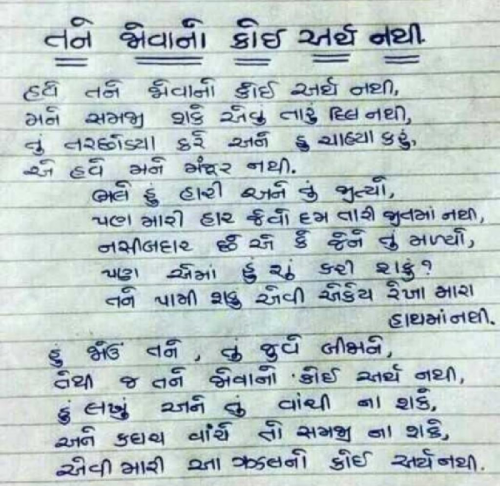 તને જોવાનો કોઈ અર્થ નથી.
હવે તને જોવાનો કોઈ અર્થ નથી,
મને સમજી શકે એવું તારું દિલ નથી,
તું તરછોડ્યા કરે અને હું ચાહ્યા કરું,
એ હવે મને મંજૂર નથી.
ભલે હું હારી અને તું જીત્યો,
પણ મારી હાર જેવો દમ તારી જીતમાં નથી,
નસીબદાર છે એ કે જેને તું મળ્યો,
પણ એમાં હું શું કરી શકું?
તને પામી શકુ એવી એકેય રેખા મારા
હાથમાં નથી.
હું જોઉં તને, તું જુવે બીજાને,
તેથી જ તને જોવાનો કોઈ અર્થ નથી,
હું લખું અને તું વાંચી ના શકે,
અને કદાચ વાંચે તો સમજી ના શકે,
એવી મારી આ ગઝલનો કોઈ અર્થ નથી.